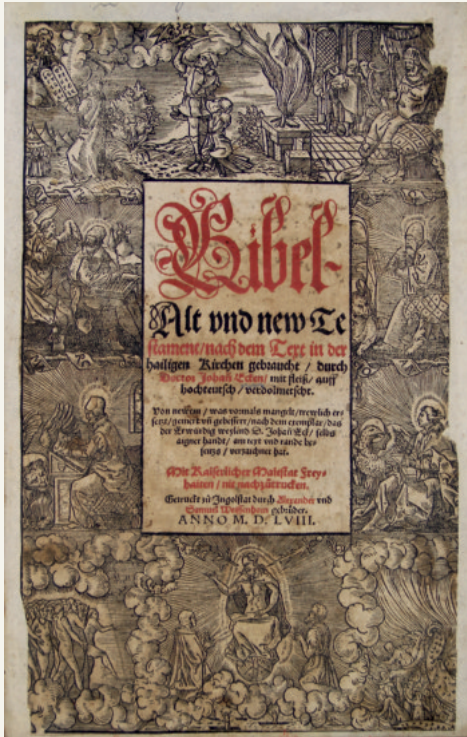 Bibel-
Alt vnd new Te
stament/nach dem Text in der
hailigen Kirchen gebraucht / durch
Doctor Johañ Ecken/ mit fleiß/ auff
hochteutsch / verdolmetscht.
Von newem / was vormals mangelt/ trewlich er-
setzt/ gebessert/ nach dem exemplar/ das
der Erwürdig weylãd D. Johañ Eck/ selbs
aigner handt/ am text vnd rande
verzaichnet hat.
Mit Kaiserlicher Maiestat Frey-
haiten / nit nachzůtrucken.
Getruckt zů Ingolstat durch Alexander vnd
Samuel Weissenhorn gebrüder.
ANNO M. D. LVIII.